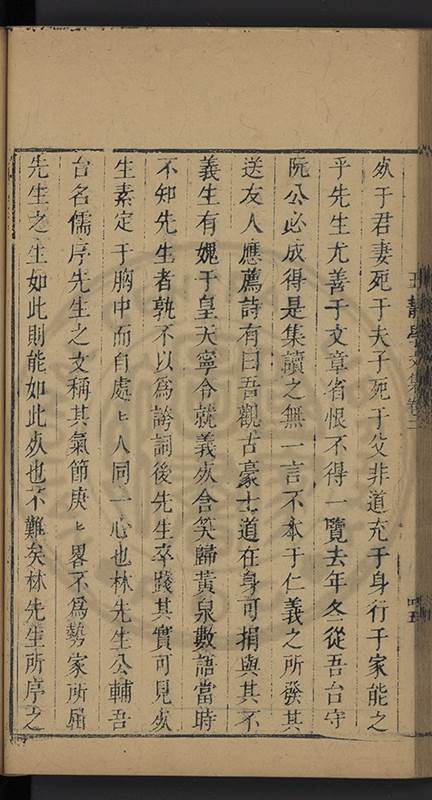 王靜學文集卷二
四五
㱙于君妻死于夫子死于父非道充于身行于家能之
乎先生尤善于文章省恨不得一覽去年冬從吾台守
阮公必成得是集讀之無一言不本于仁義之所發其
送友人應薦詩有曰吾觀古豪士道在身可捐與其不
義生有媿于皇天寧令就義㱙含笑歸黃泉數語當時
不知先生者孰不以爲誇詞後先生卒踐其實可見㱙
生素定于胸中而自處〻人同一心也林先生公輔吾
台名儒序先生之文稱其氣節庚〻畧不爲勢家所屈
先生之生如此則能如此㱙也不難矣林先生所序之